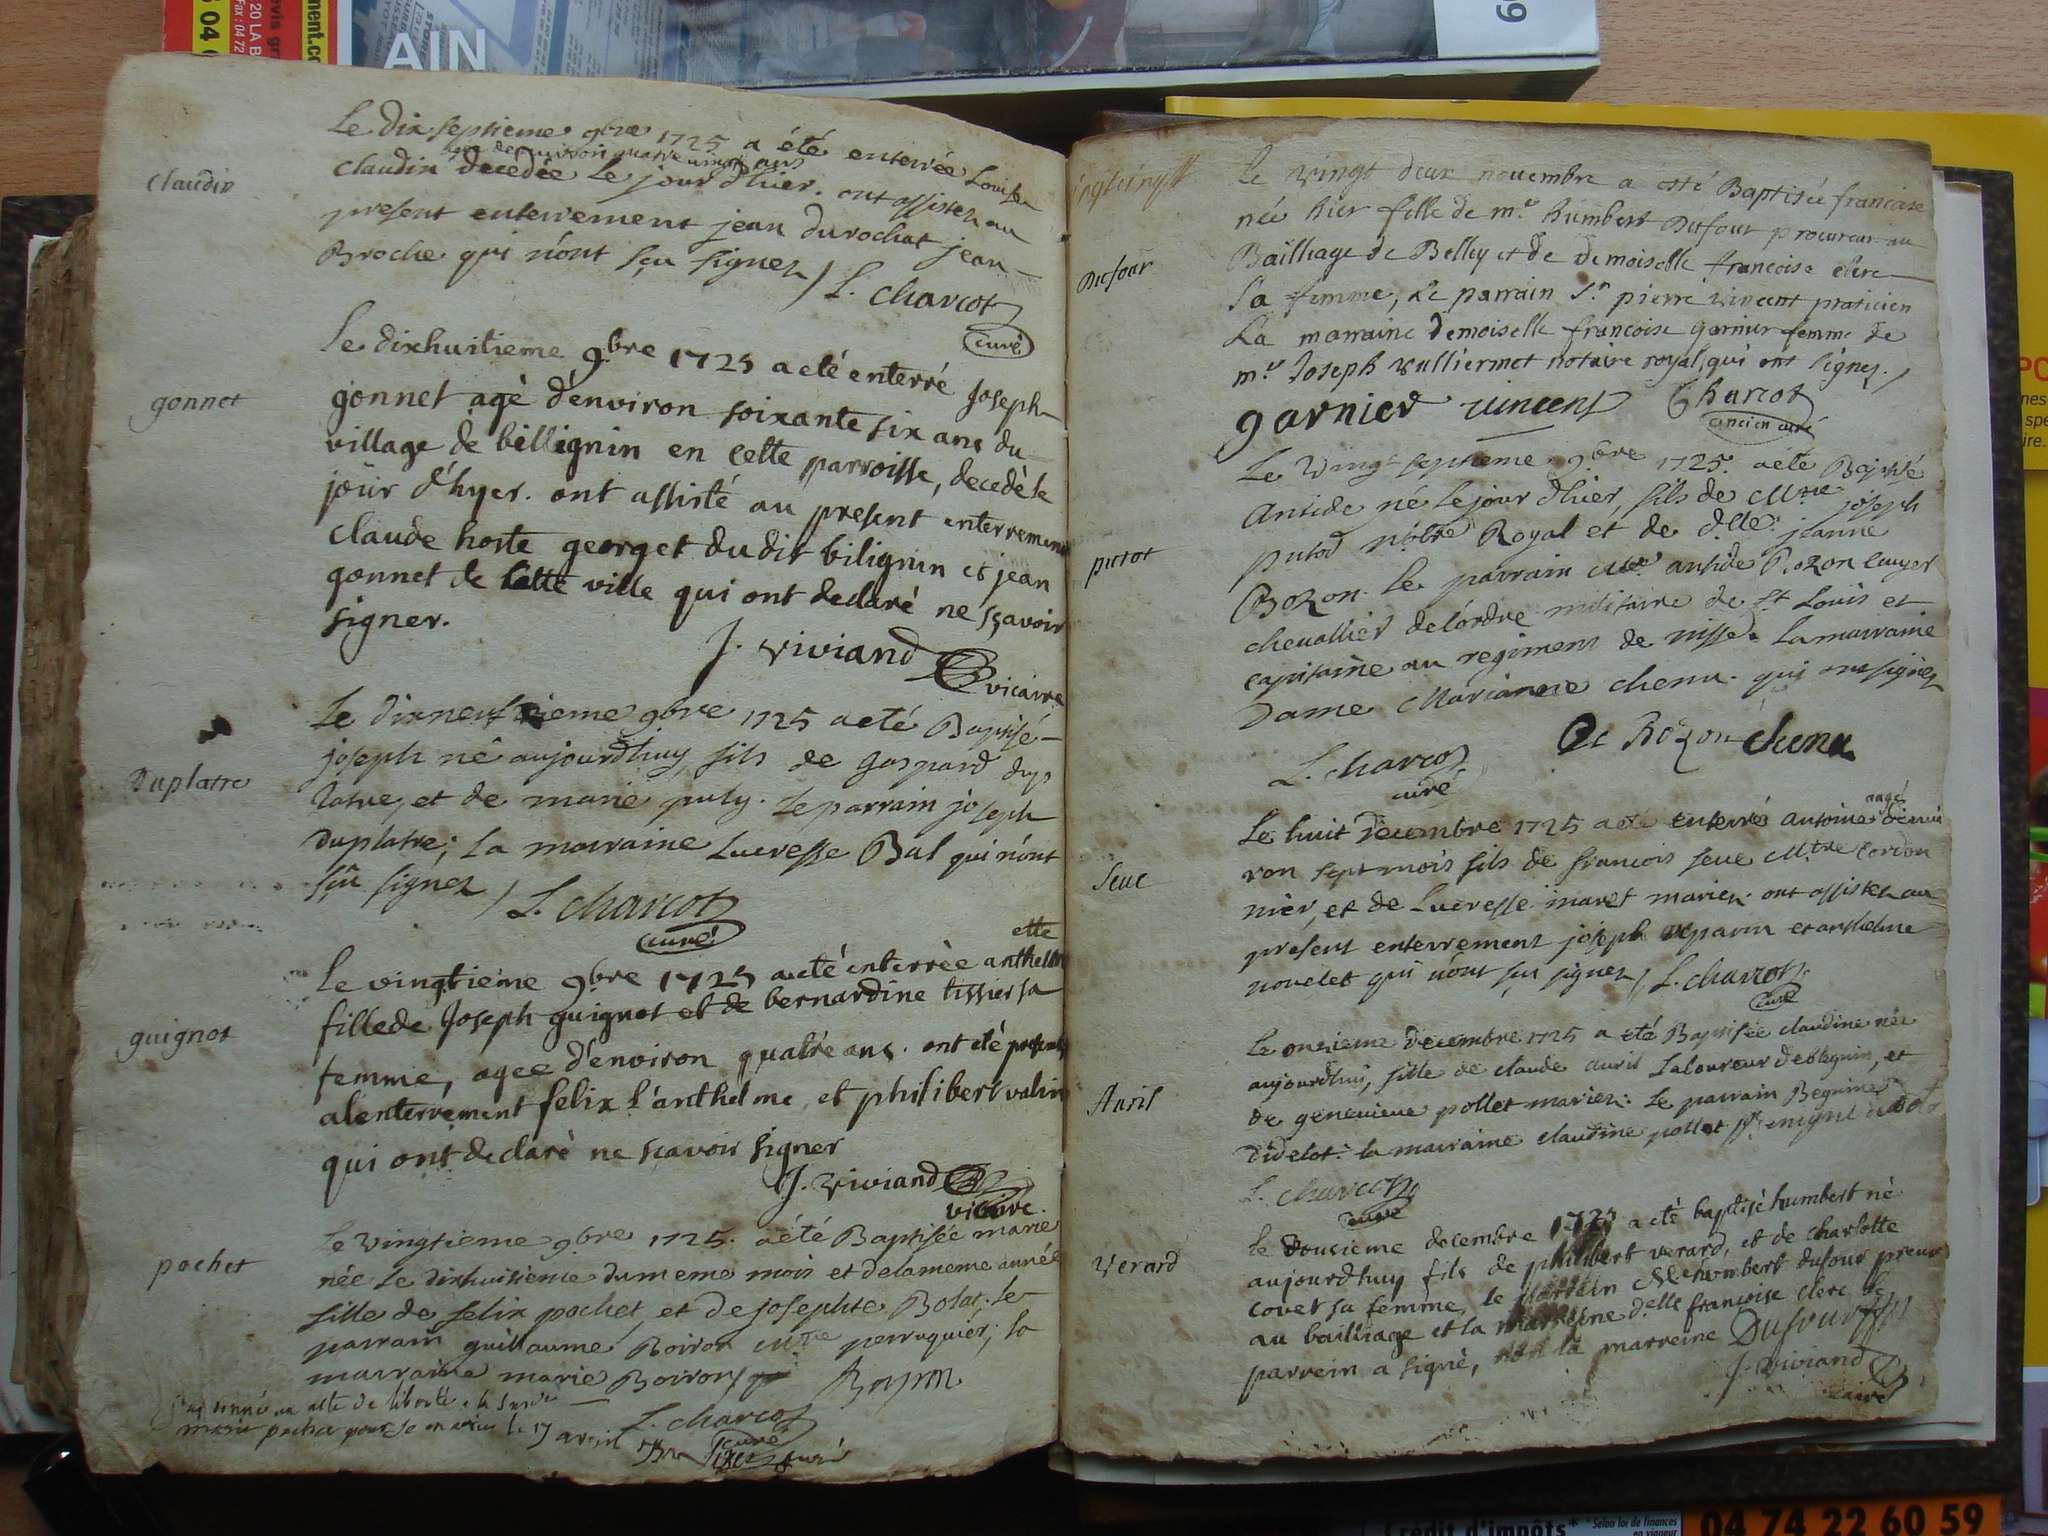 AIN
Claudin
Le dix septieme 9bre 1725 a été enterrée Louise
agée d'environ quatre vingt ans
Claudin decedée le jour d'hier. ont assistez au
present enterrement jean durochat jean
Broche qui n'ont sçu signer / L. Charcot
curé
gonnet
Le dixhuitieme 9.bre 1725 a eté enterré Joseph
gonnet agè d'environ soixante six ans du
village de billignin en cette parroisse, decedè le
joür d'hyer. ont assisté au present enterrement
claude hoste georget dudit bilignin et jean
gonnet de cette ville qui ont declarè ne sçavoir
signer.
J. Viviand vicaire
Duplatre
Le dixneufvieme 9bre 1725 a eté Baptisé
joseph né aujourdhuy fils de gaspard dup
latre, et de marie puly. Le parrain joseph
Duplatre; La marraine Lucresse Bal qui n'ont
sçu signer / L. Charcot
curé
guignot
ette
Le vingtième 9bre 1725 a eté enterrèe anthelm
fille de Joseph guignot et de bernardine tissier sa
femme, agee d'environ quatre ans. ont eté presents
a lenterrement felix l'anthelme et philibert valin
qui ont declarè ne sçavoir signer
J. Viviand
vicaire
pochet
Le vingtieme 9bre 1725. a été Baptisée marie
née le dixhuitieme du meme mois et de la meme année
fille de felix pochet, et de josephte Bolat. le
parrain guillaume Boiron Mtre perruquier; la
marraine marie Boiron / qui Boyron
L. Charcot
curé
marie pochet pour se marier le 17 avril
Dufour
Le vingt deux novembre a esté Baptisée francoise
née hier fille de m.e humbert Dufour procureur au
Bailliage de Belley et de Demoiselle francoise clerc
Sa femme, Le parrain S.r pierre vincent praticien
La marraine Demoiselle francoise garnier femme de
m.e Joseph vulliermet notaire royal, qui ont signez. /
garnier vincent Charcot
ancien curé
putot
Le vingt septieme 9bre 1725. a été Baptisé
Antide né le jour d'hier, fils de Mtre joseph
putod notre Royal et de d.lle jeanne
Bozon. le parrain Mre antide Bozon Ecuyer
chevallier de l'ordre militaire de St Louis et
capitaine au regiment de nisse. La marraine
Dame Marianne chenu. qui ont signez
L. Charcot De Bozon chenu
curé
Seue
aagé
Le huit Decembre 1725 a eté enterré antoine denvi
ron sept mois fils de francois seue Mtre cordon
nier, et de Lucresse maret mariez. ont assistez au
present enterrement joseph vepavin et anthelme
novelet qui n'ont sçu signer / L. Charcot
curé
Auril
Le onzieme Decembre 1725 a eté Baptisée claudine née
aujourdhui, fille de claude auril Laboureur de blignin, et
de genevieve pollet mariez. Le parrain Benigne
Didelot. la marraine claudine pollet
L. Charcot
curé
Verard
le dousieme decembre 1725 a eté baptisé humbert né
aujourdhuy fils de philibert verard, et de charlotte
covet sa femme, le parrain Me humbert dufour procureur
au bailliage et la marreine d.elle francoise clerc le
parrein a signé, non la marreine Dufour
J. Viviand
Crédit d'impôts*
*Selon loi de finances
en vigueur
04 74 22 60 59